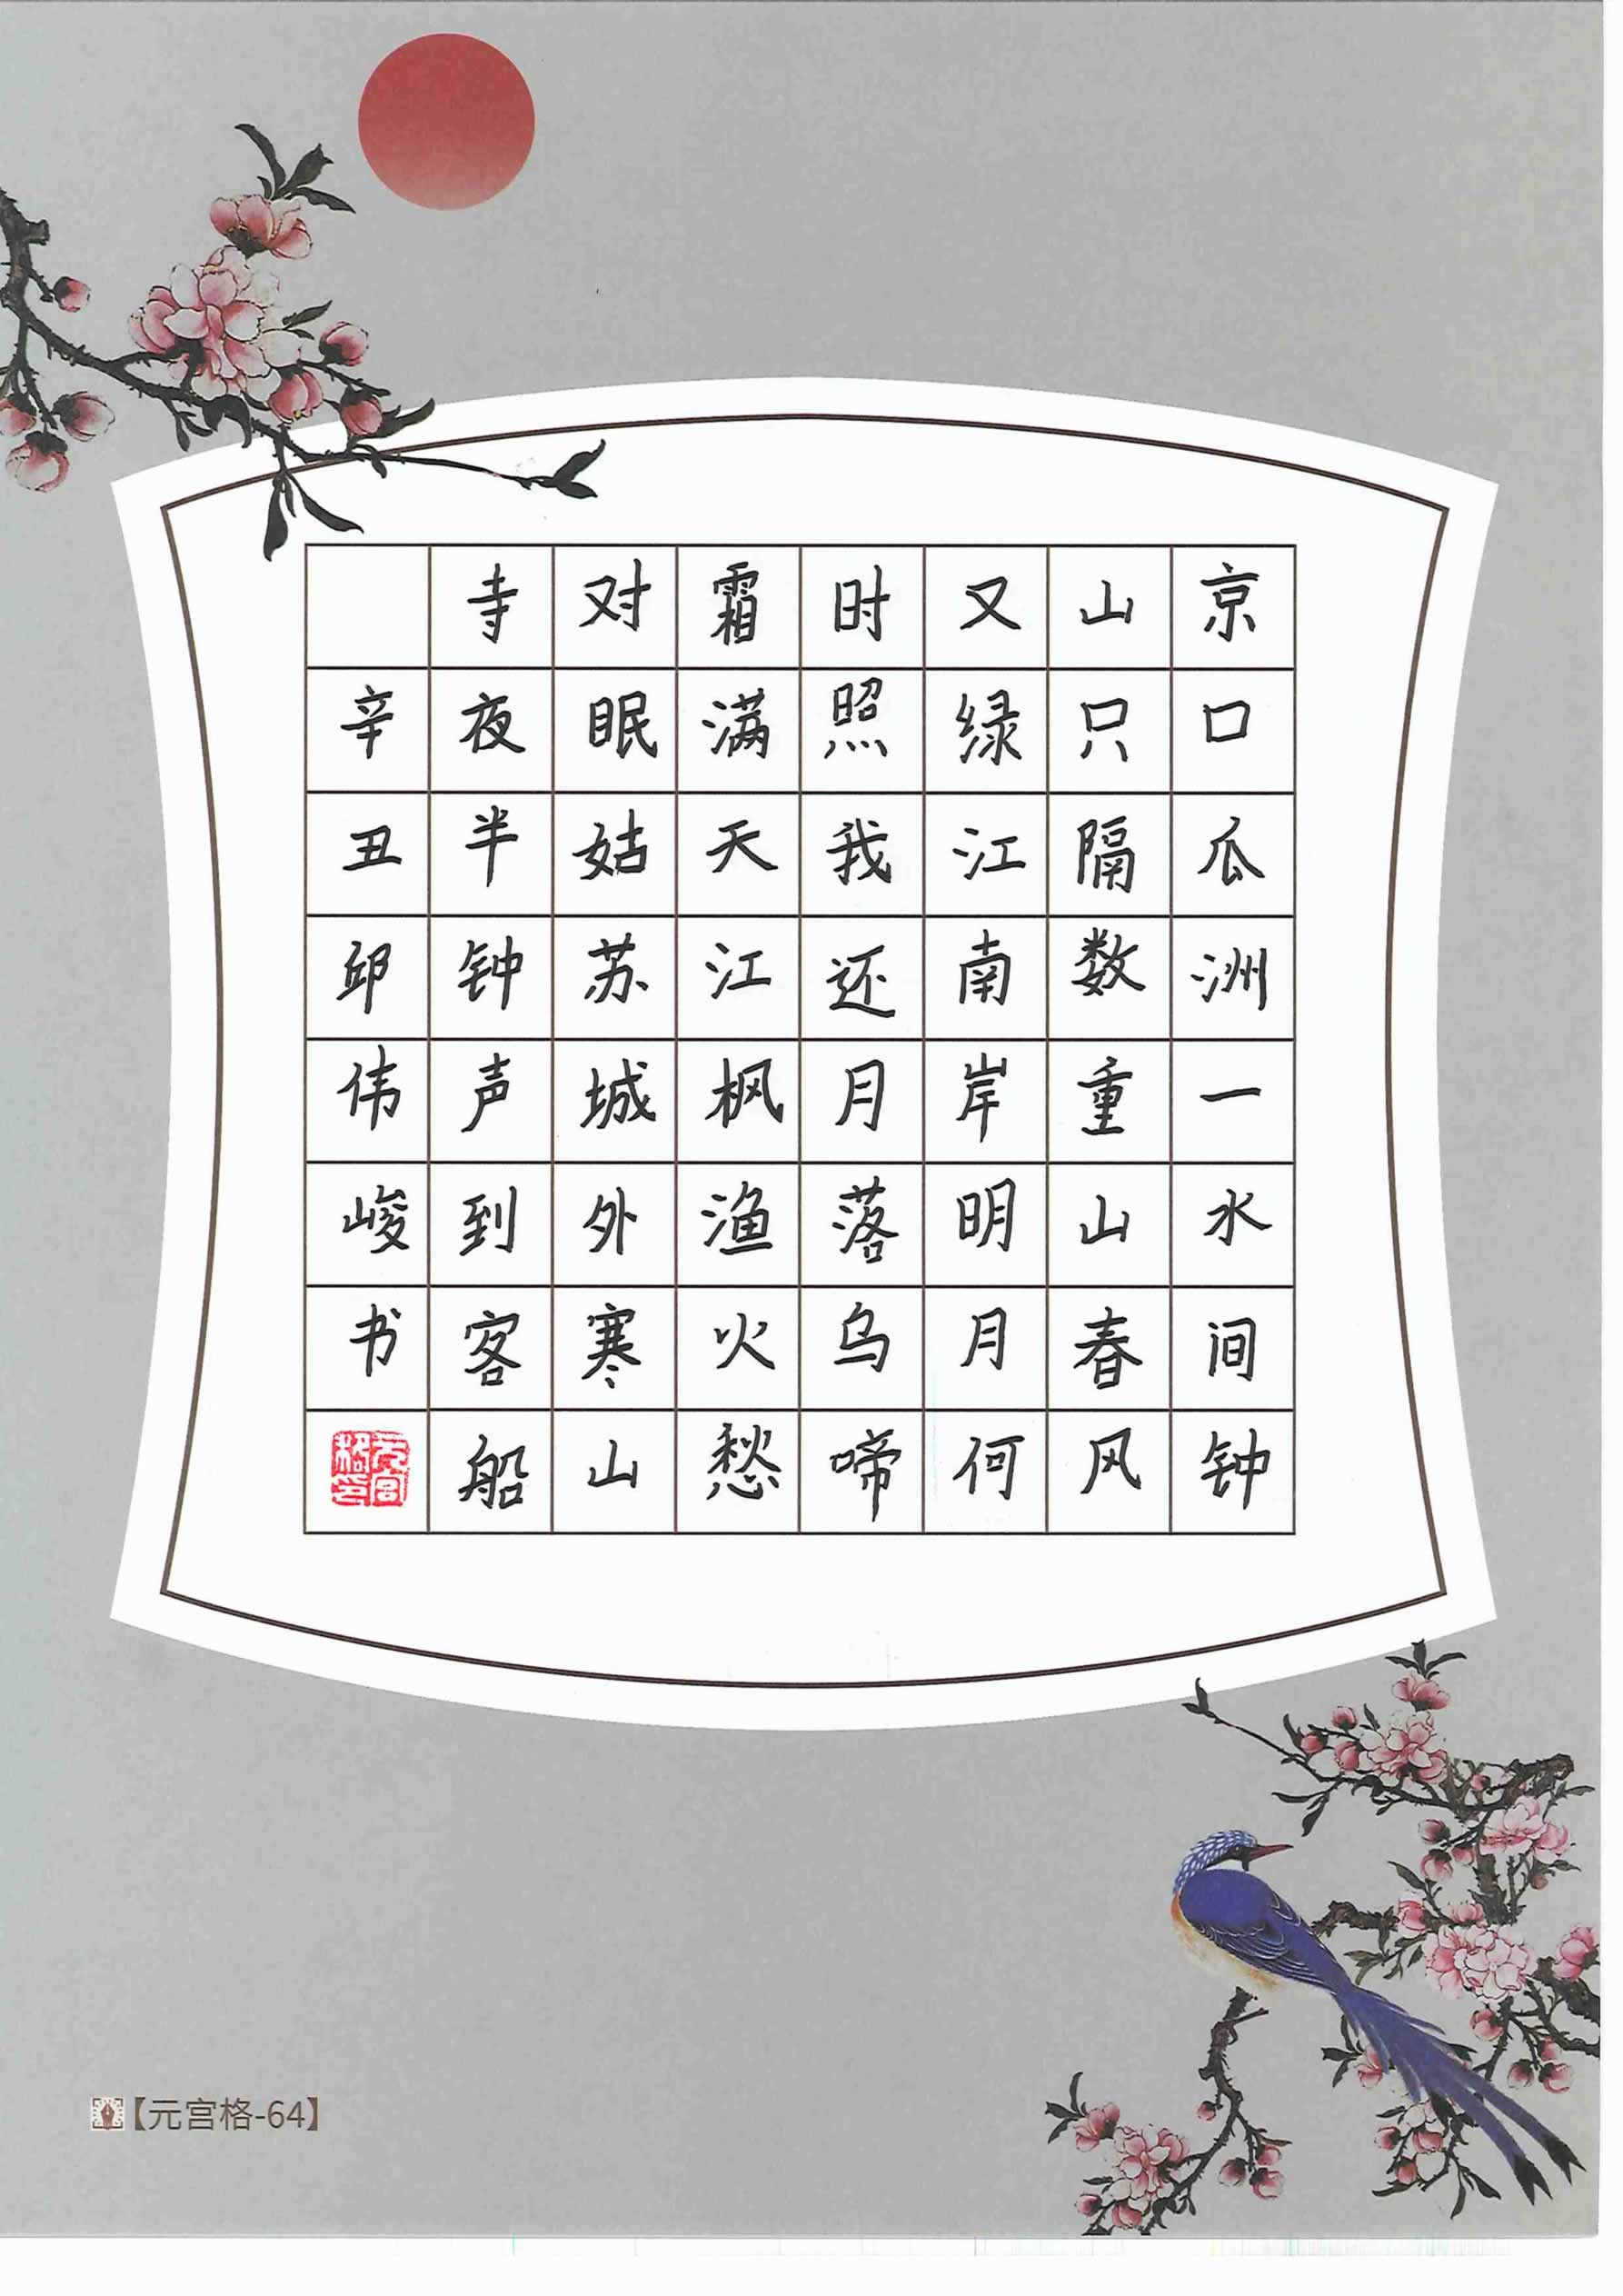 京口瓜洲一水间钟
山只隔数重山春风
又绿江南岸明月何
时照我还月落乌啼
霜满天江枫渔火愁
对眠姑苏城外寒山
寺夜半钟声到客船
辛丑邱伟峻书
元宫格印
【元宫格-64】